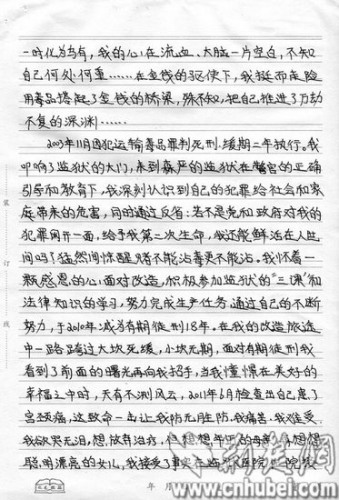 一时化为乌有，我的心在流血、大脑一片空白，不知
自己何处何重……在金钱的驱使下，我铤而走险
用毒品搭起了金钱的桥梁，殊不知，把自己推进了万劫
不复的深渊……
2003年11月因犯运输毒品罪判死刑、缓期二年执行。我
叩响了监狱的大门，来到森严的监狱在警官的正确
引导和教育下，我深刻认识到自己的犯罪给社会和家
庭带来的危害，同时通过反省：若不是党和政府对我的
犯罪网开一面，给予我第二次生命，我还能鲜活在人世
间吗？猛然间惊醒，赌不能沾毒更不能沾。我怀着一
颗感恩的心，面对改造，积极参加监狱的"三课"和
法律知识的学习，努力完成生产任务，通过自己的不断
努力，于2010年减为有期徒刑18年，在我的改造旅途
中一路跨过大坎死缓，小坎无期，面对有期徒刑我
看到了前面的曙光再向我招手，当我憧憬在美好的
幸福之中时，天有不测风云，2011年6月检查出自己患了
宫颈癌，这致命一击让我防无胜防，我痛苦、我难受、
我欲哭无泪，想放弃治疗，但想想年迈的母亲，想想
聪明漂亮的女儿，我接受了
装
订
线
年 月
荆楚网
www.cnhubei.com